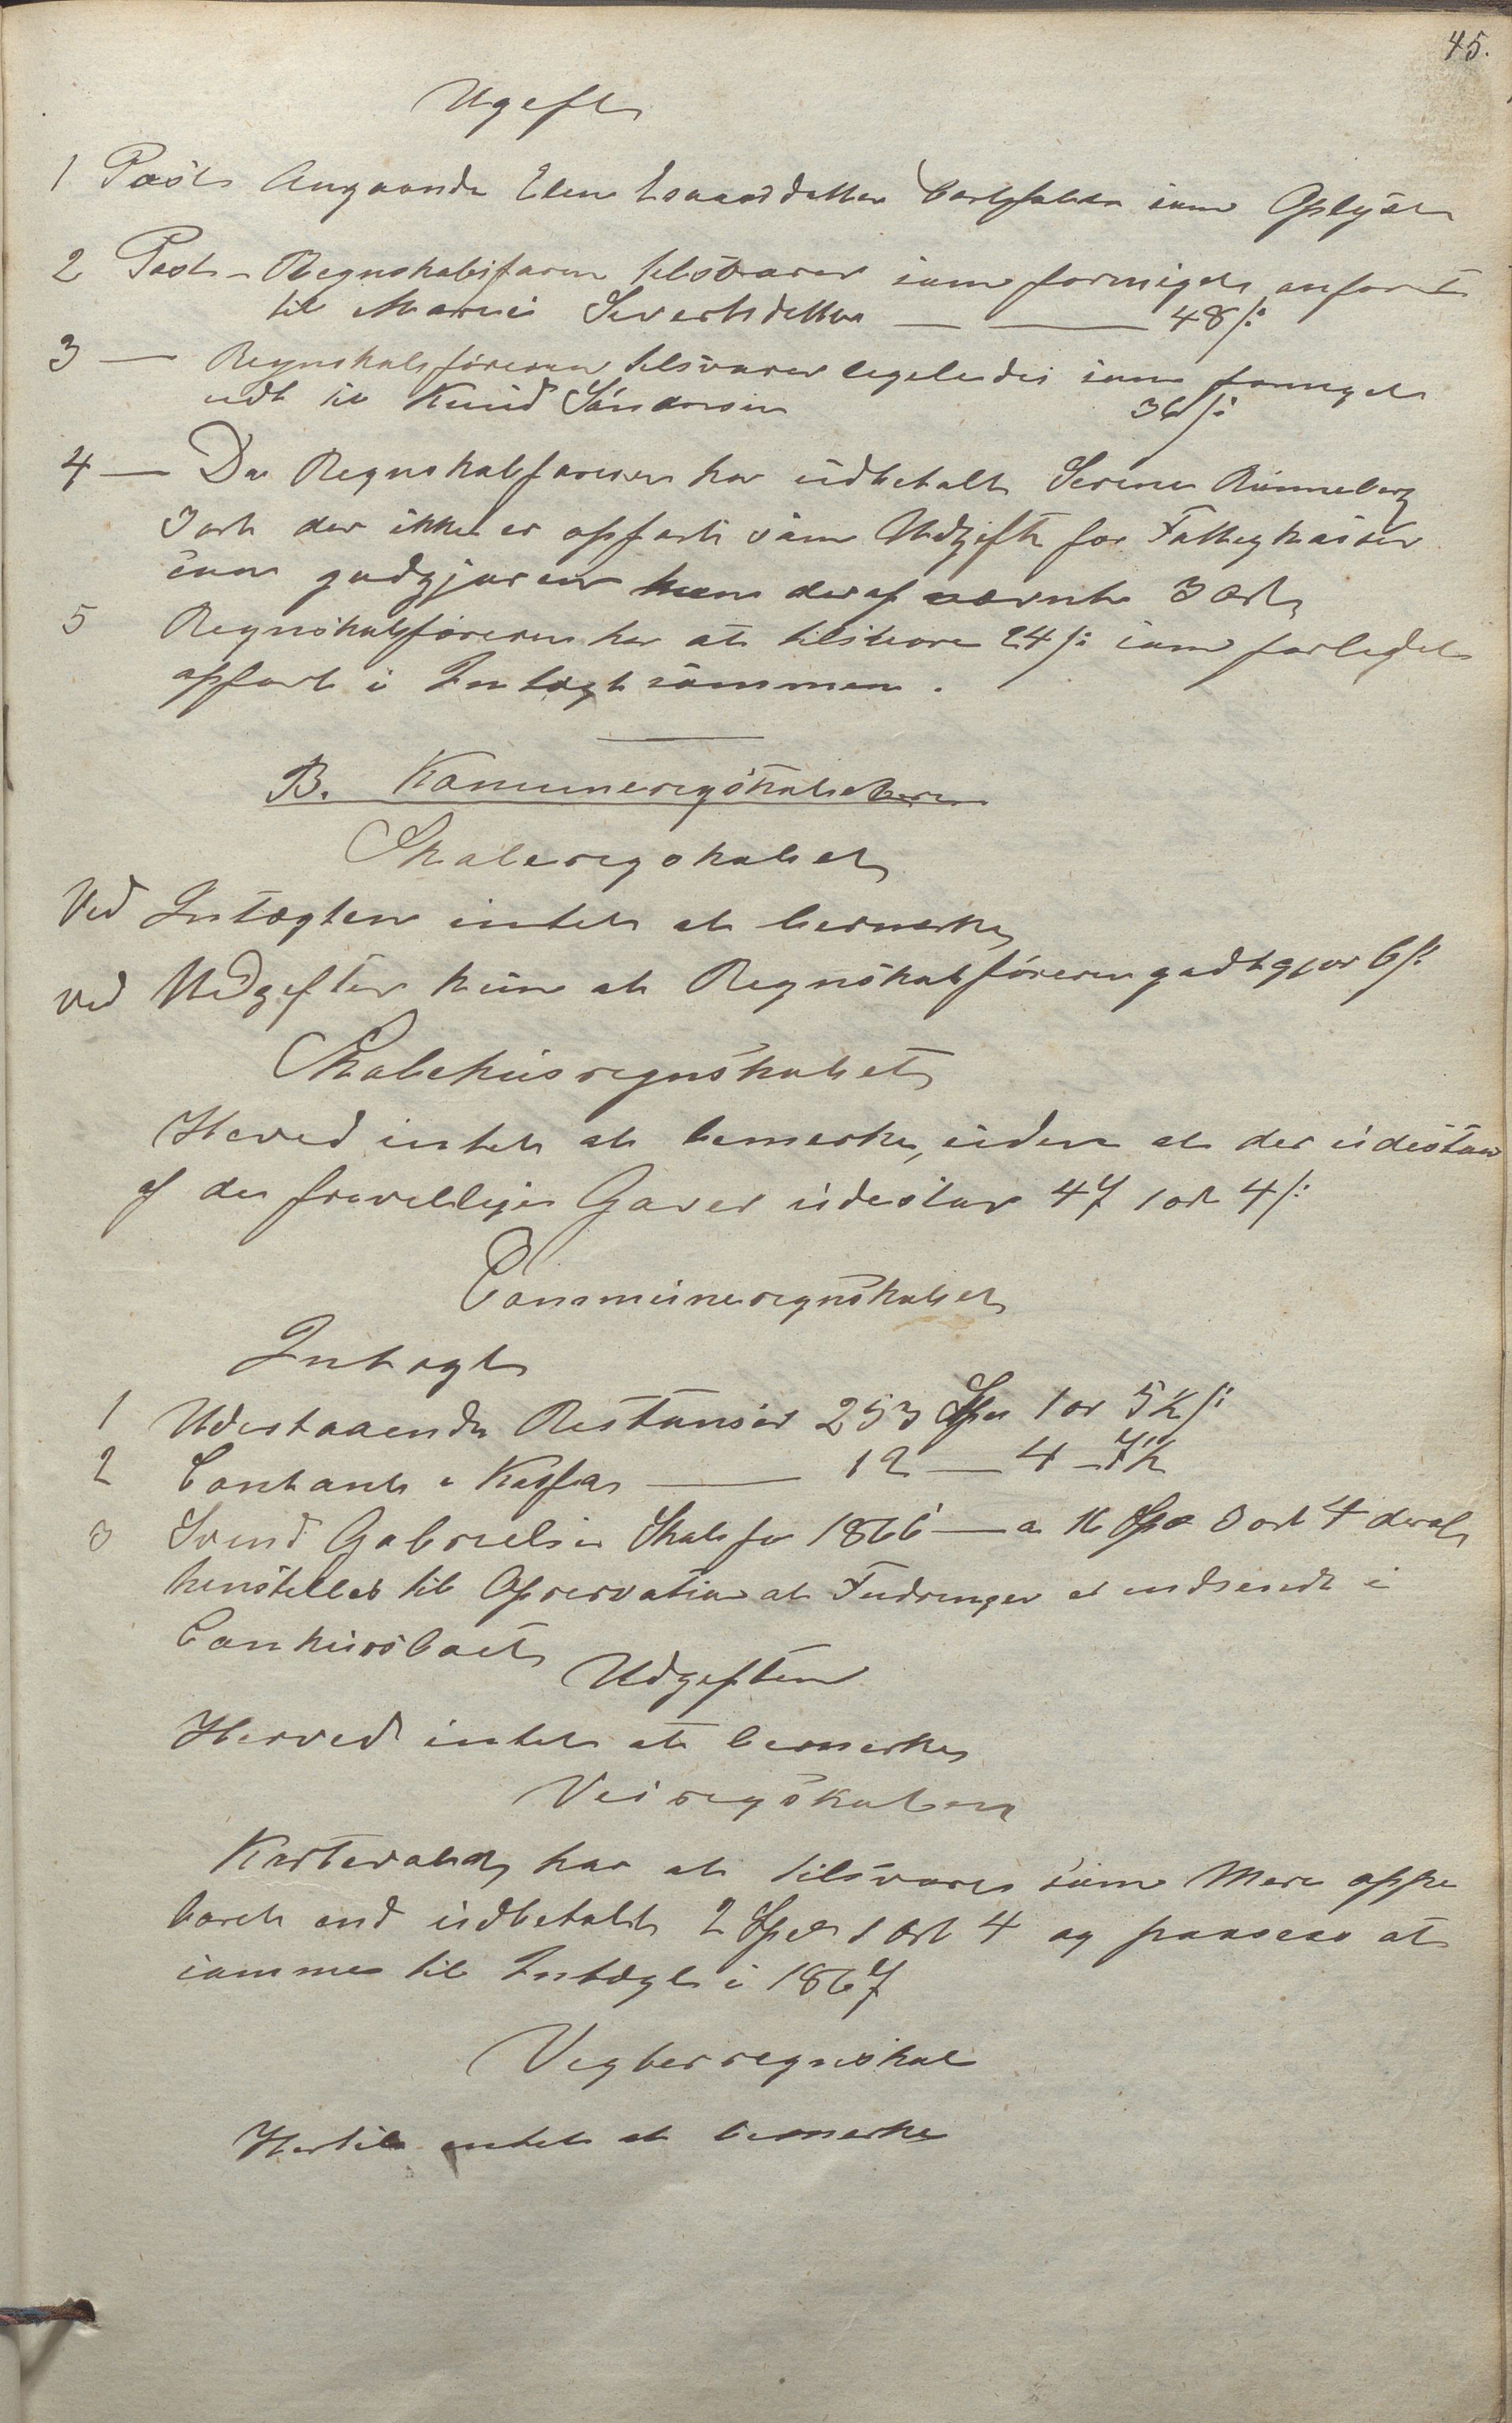 45.
Ugeft
1 Post Angaaende Elen bortfalder som Oplyst
2 Post - Regnskabsføren tilsvarer som formeget anført
til Maria Sivertsdatter — — 48 s:
3 — Regnskabsføreren tilsvarer legeledes som formeget
udt til Knud 36 s:
4 — Da Regnskabsføreren har udbetalt Serine Rønneberg
3 ort der ikke er opført som Udgift for Fattigkassen
som godgjøres ham deraf 3 ort
5 Regnskabsføreren har at tilsvare 24 s: som forlidet
opført i Indtægtsummen.
B. Komuneregskaberne
Skoleregskabet
Ved Intægten intet at bemerke
ved Udgifter kun at Regnskabsføreren godtgjør 6 s:
Skolehusregnskabet
Herved intet at bemerke, uden at der udestaar
af de frivellige Gaver udestaar 47 1 ort 4 s:
Communeregnskabet
Intægt
1 Udestaaende Restanser 253 Spd 1 or 5½ s:
2 Contant i Kassa — 12 — 4 - 7½
3 Svend Gabrielsen Skat for 1866 — a 16 Spd 3 ort 4
henstilles til Opservation at Fordringen er indsendt i
Conkursboet
Udgiften
Herved intet at bemerke
Veiregskaben
har at tilsvare som Mere oppe
baaret end udbetalt 2 Spd 1 Ort 4 og paasees at
kommes til Intægt i 1867
Hertil intet at bemerke